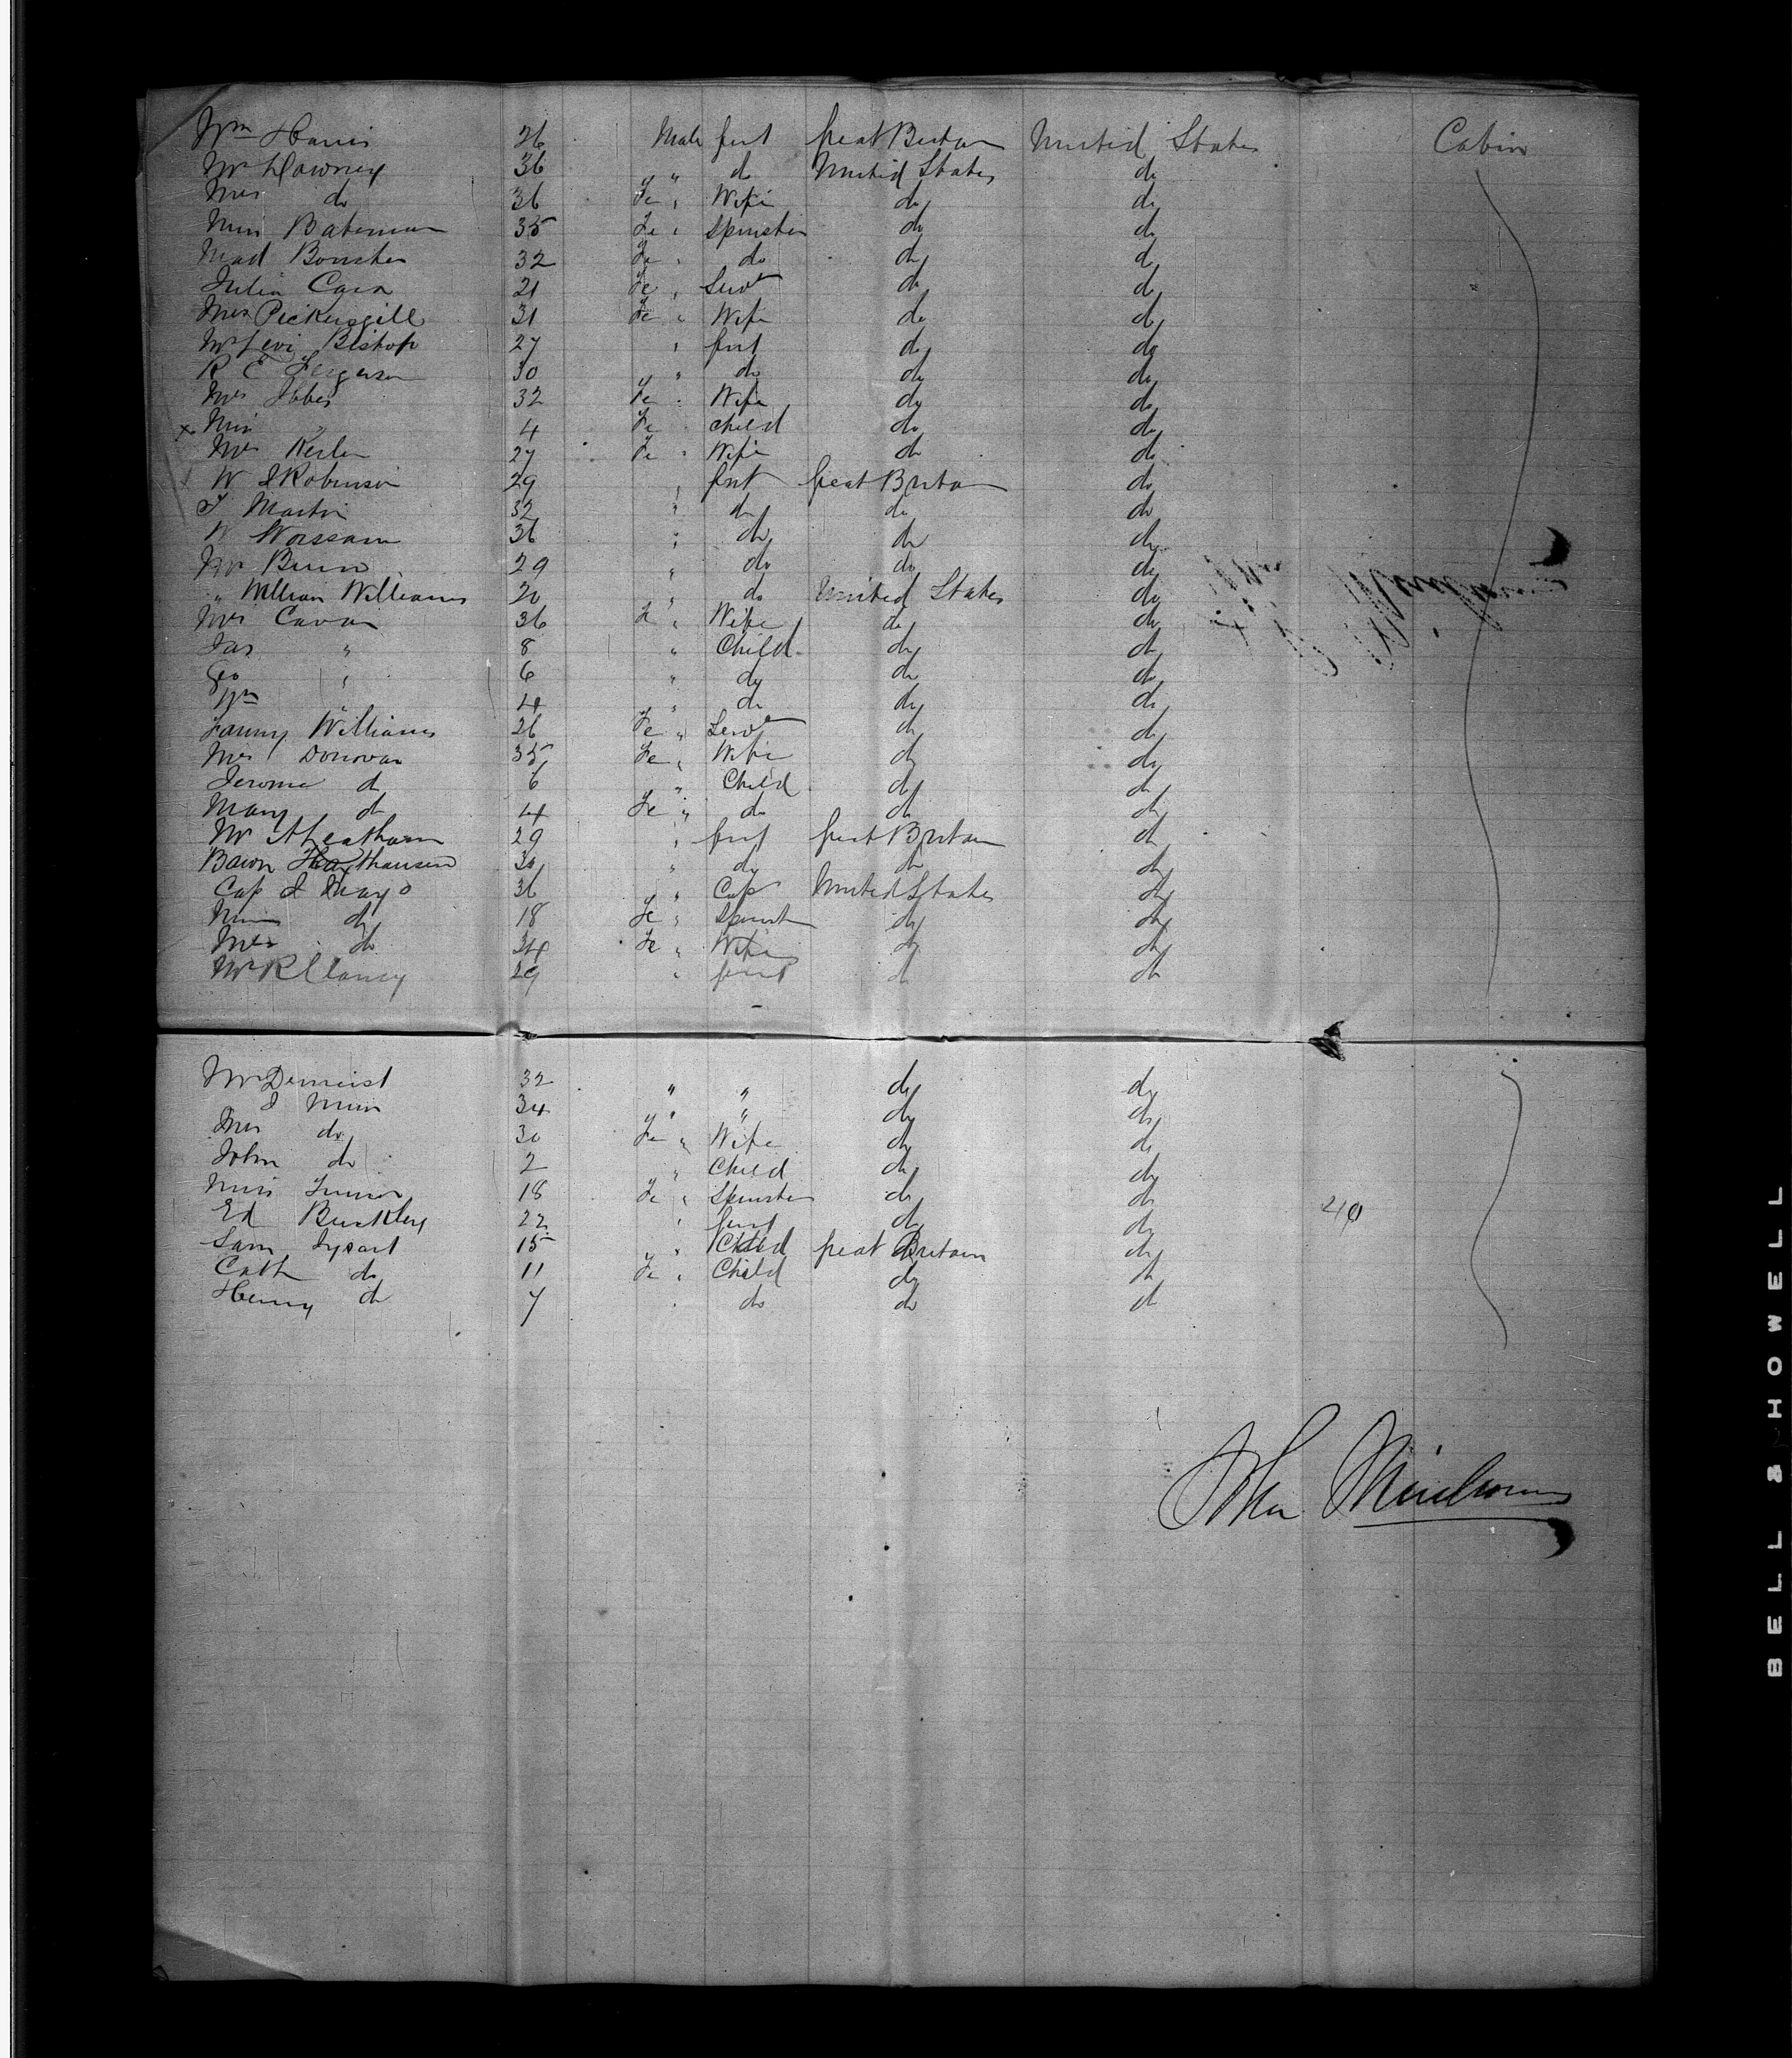 Wm Harris 26 Male Gent Great Britain United States Cabin
Mr Downey 36 " do United States do
Mrs do 36 Fe " Wife do do
Miss Bateman 35 Fe " Spinster do do
Mad 32 Fe " do do do
Julia 21 Fe " Servt do do
Mrs Pickersgill 31 Fe " Wife do do
Mr Levi Bishop 27 " Gent do do
R E Fergerson 30 " do do do
Mrs 32 Fe " Wife do do
x Miss " 4 Fe " Child do do
Mrs 27 Fe " Wife do do
W J Robinson 29 " Gent Great Britain do
T Martin 32 " do do do
W Worssam 36 " do do do
Mr 29 " do do do
" William Williams 20 " do United States do
Mrs Cavan 36 Fe " Wife do do
Jas " 8 " Child do do
Geo " 6 " do do do
Wm " 4 " do do do
Fanny Williams 26 Fe " Servt do do
Mrs Donovan 35 Fe " Wife do do
Jerome do 6 " Child do do
Mary do 4 Fe " do do do
Mr 29 " Gent Great Britain do
Baron Haxthausen 30 " do do do
Cap J Mayo 36 " Cap United States do
Miss do 18 Fe " Spinster do do
Mrs do 34 Fe " Wife do do
Mr R Clancy 29 " Gent do do
Mr 32 " " do do
J 34 " " do do
Mrs do 30 Fe " Wife do do
John do 2 " Child do do
Miss 18 Fe " Spinster do do
Ed Buckley 22 " Gent do do 40
Sam Dysart 15 " Child Great Britain do
Cath do 11 Fe " Child do do
Henry do 7 " do do do
John
BELL & HOWELL